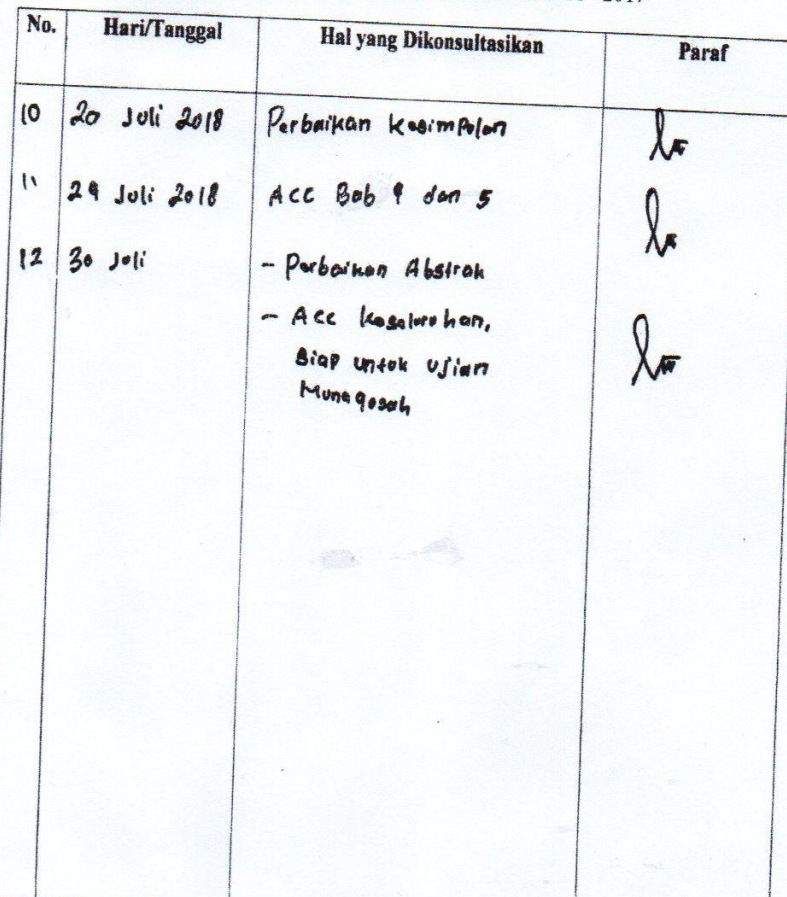 2017
No. Hari/Tanggal Hal yang Dikonsultasikan Paraf
10 20 Juli 2018 Perbaikan Kesimpulan
11 24 Juli 2018 Acc Bab 4 dan 5
12 30 Juli - Perbaikan Abstrak
- Acc Keseluruhan,
siap untuk Ujian
Munaqosah